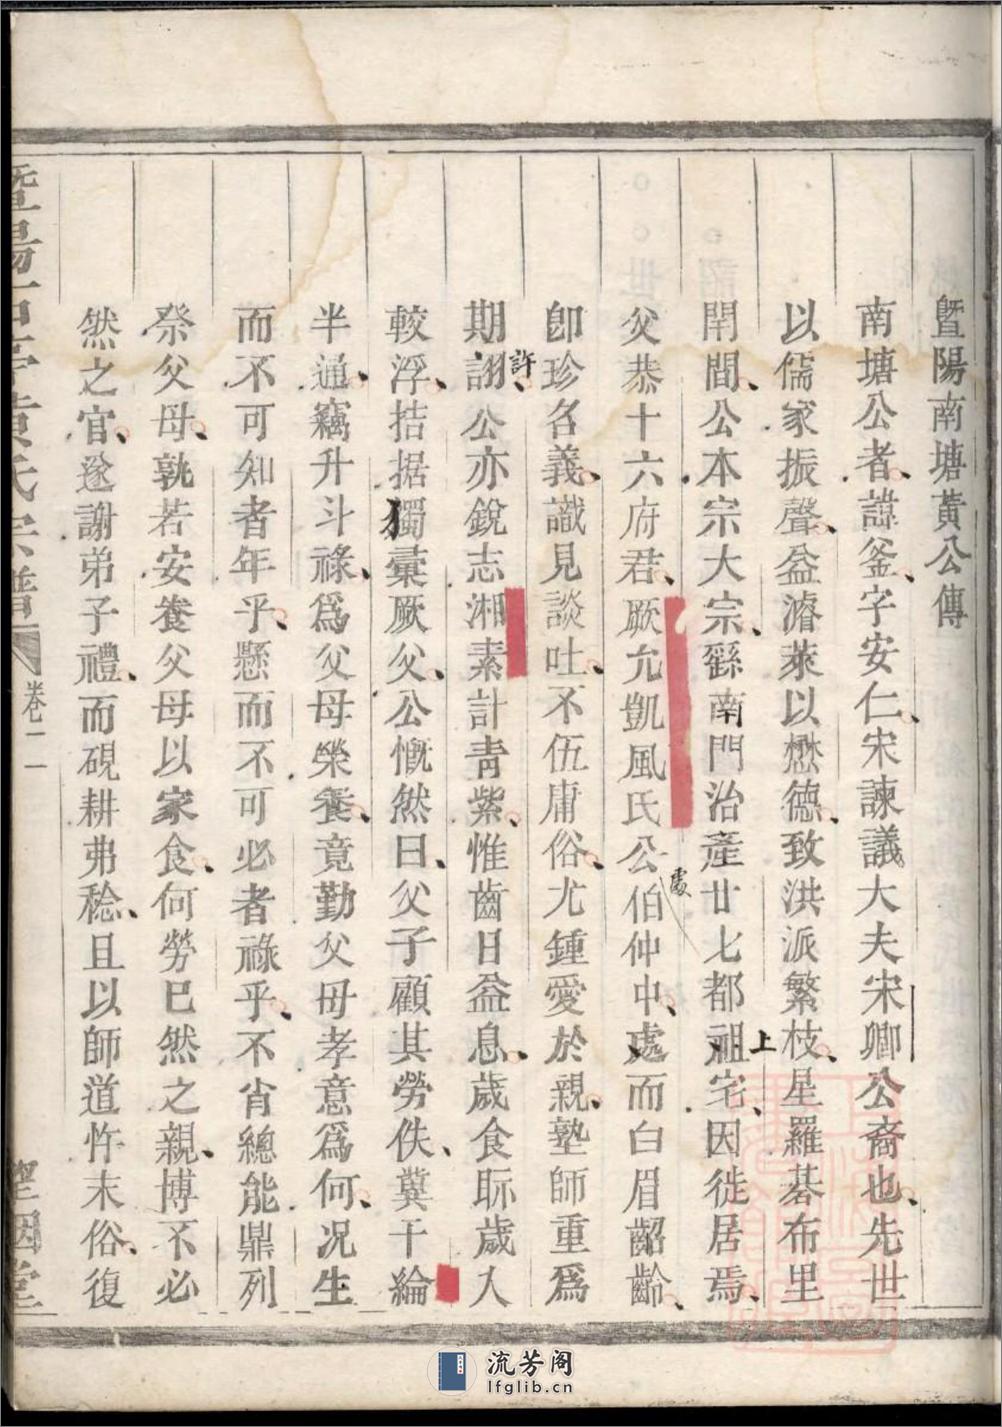 暨陽南塘黃公傳
南塘公者諱釜字安仁宋諫議大夫宋卿公裔也先世
以儒家振聲益濬萊以懋德致洪派繁枝星羅碁布里
閈間公本宗大宗繇南門治產廿七都祖宅因徙居焉
上
父恭十六府君厥允凱風氏公伯仲中處而白眉齠齡
處
卽珍名義識見談吐不伍庸俗尤鍾愛於親塾師重爲
期詡公亦銳志湘素計青紫惟齒日益息歲食眎歲入
許
較浮拮据獨稾厥父公慨然曰父子顧其勞佚冀干綸
半通竊升斗祿爲父母榮養竟勤父母孝意爲何况生
而不可知者年乎懸而不可必者祿乎不肖總能鼎列
祭父母孰若安養父母以家食何勞巳然之親博不必
然之官遂謝弟子禮而硯耕弗稔且以師道忤末俗復
暨陽 亭黃氏宗譜
卷二 一
流芳阁
lfglib.cn